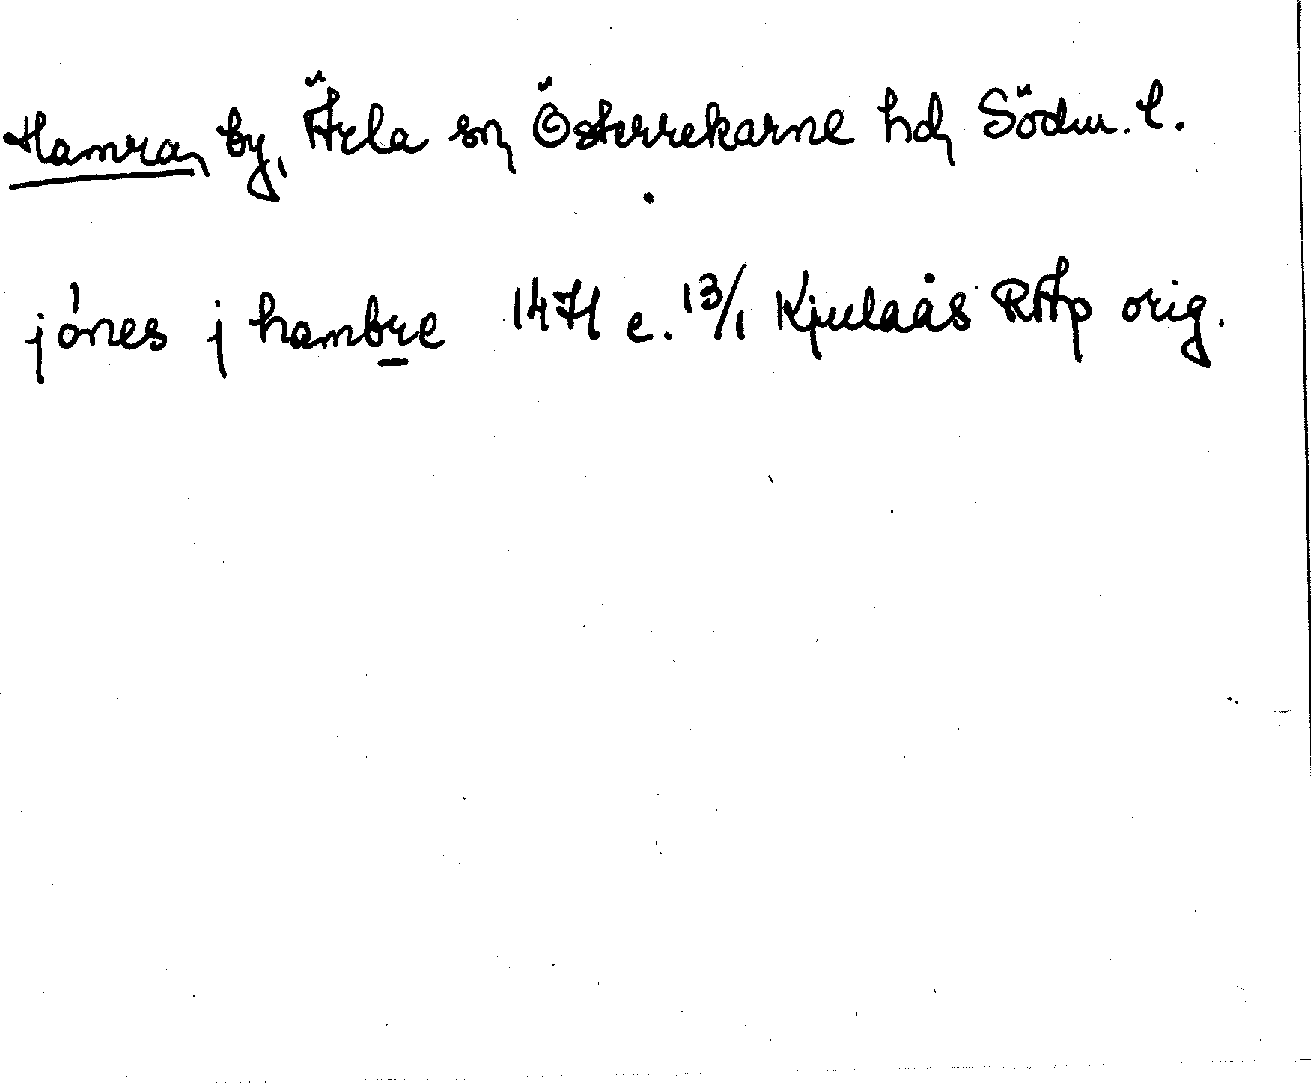 Hamra, by, Ärla sn, Österrekarne hd, Södm. l.
jónes j hambre 1471 e. 13/1 Kjulaås RAp orig.